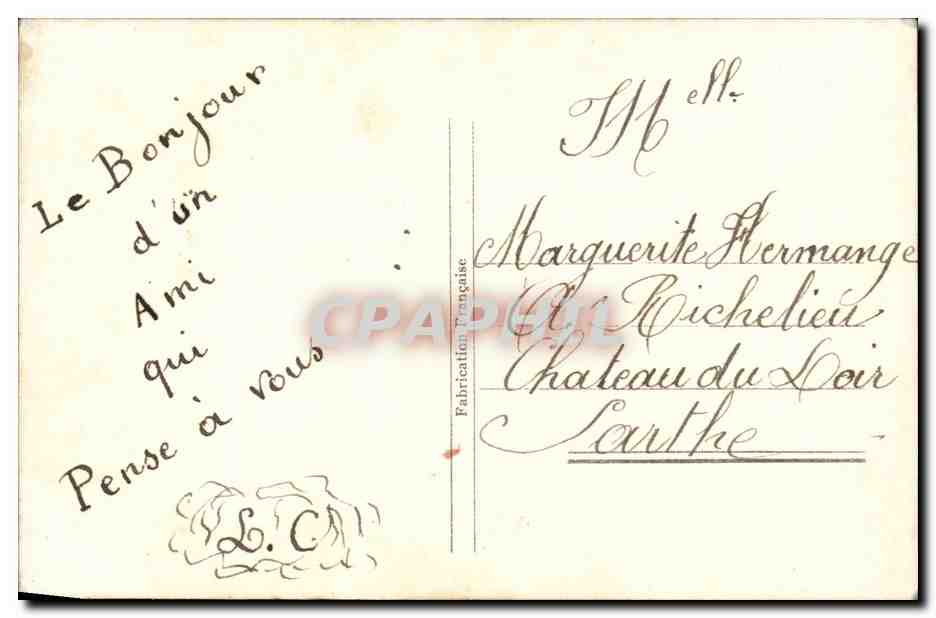 Le Bonjour
d'un
Ami
qui
Pense à vous
L. C.
Fabrication Française
CPAPHIL
Melle
Marguerite Hermange
A Richelieu
Chateau du Loir
Sarthe